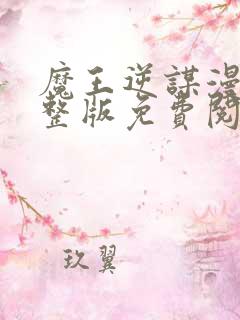 魔王逆謀漫
整版免費閱
玖翼